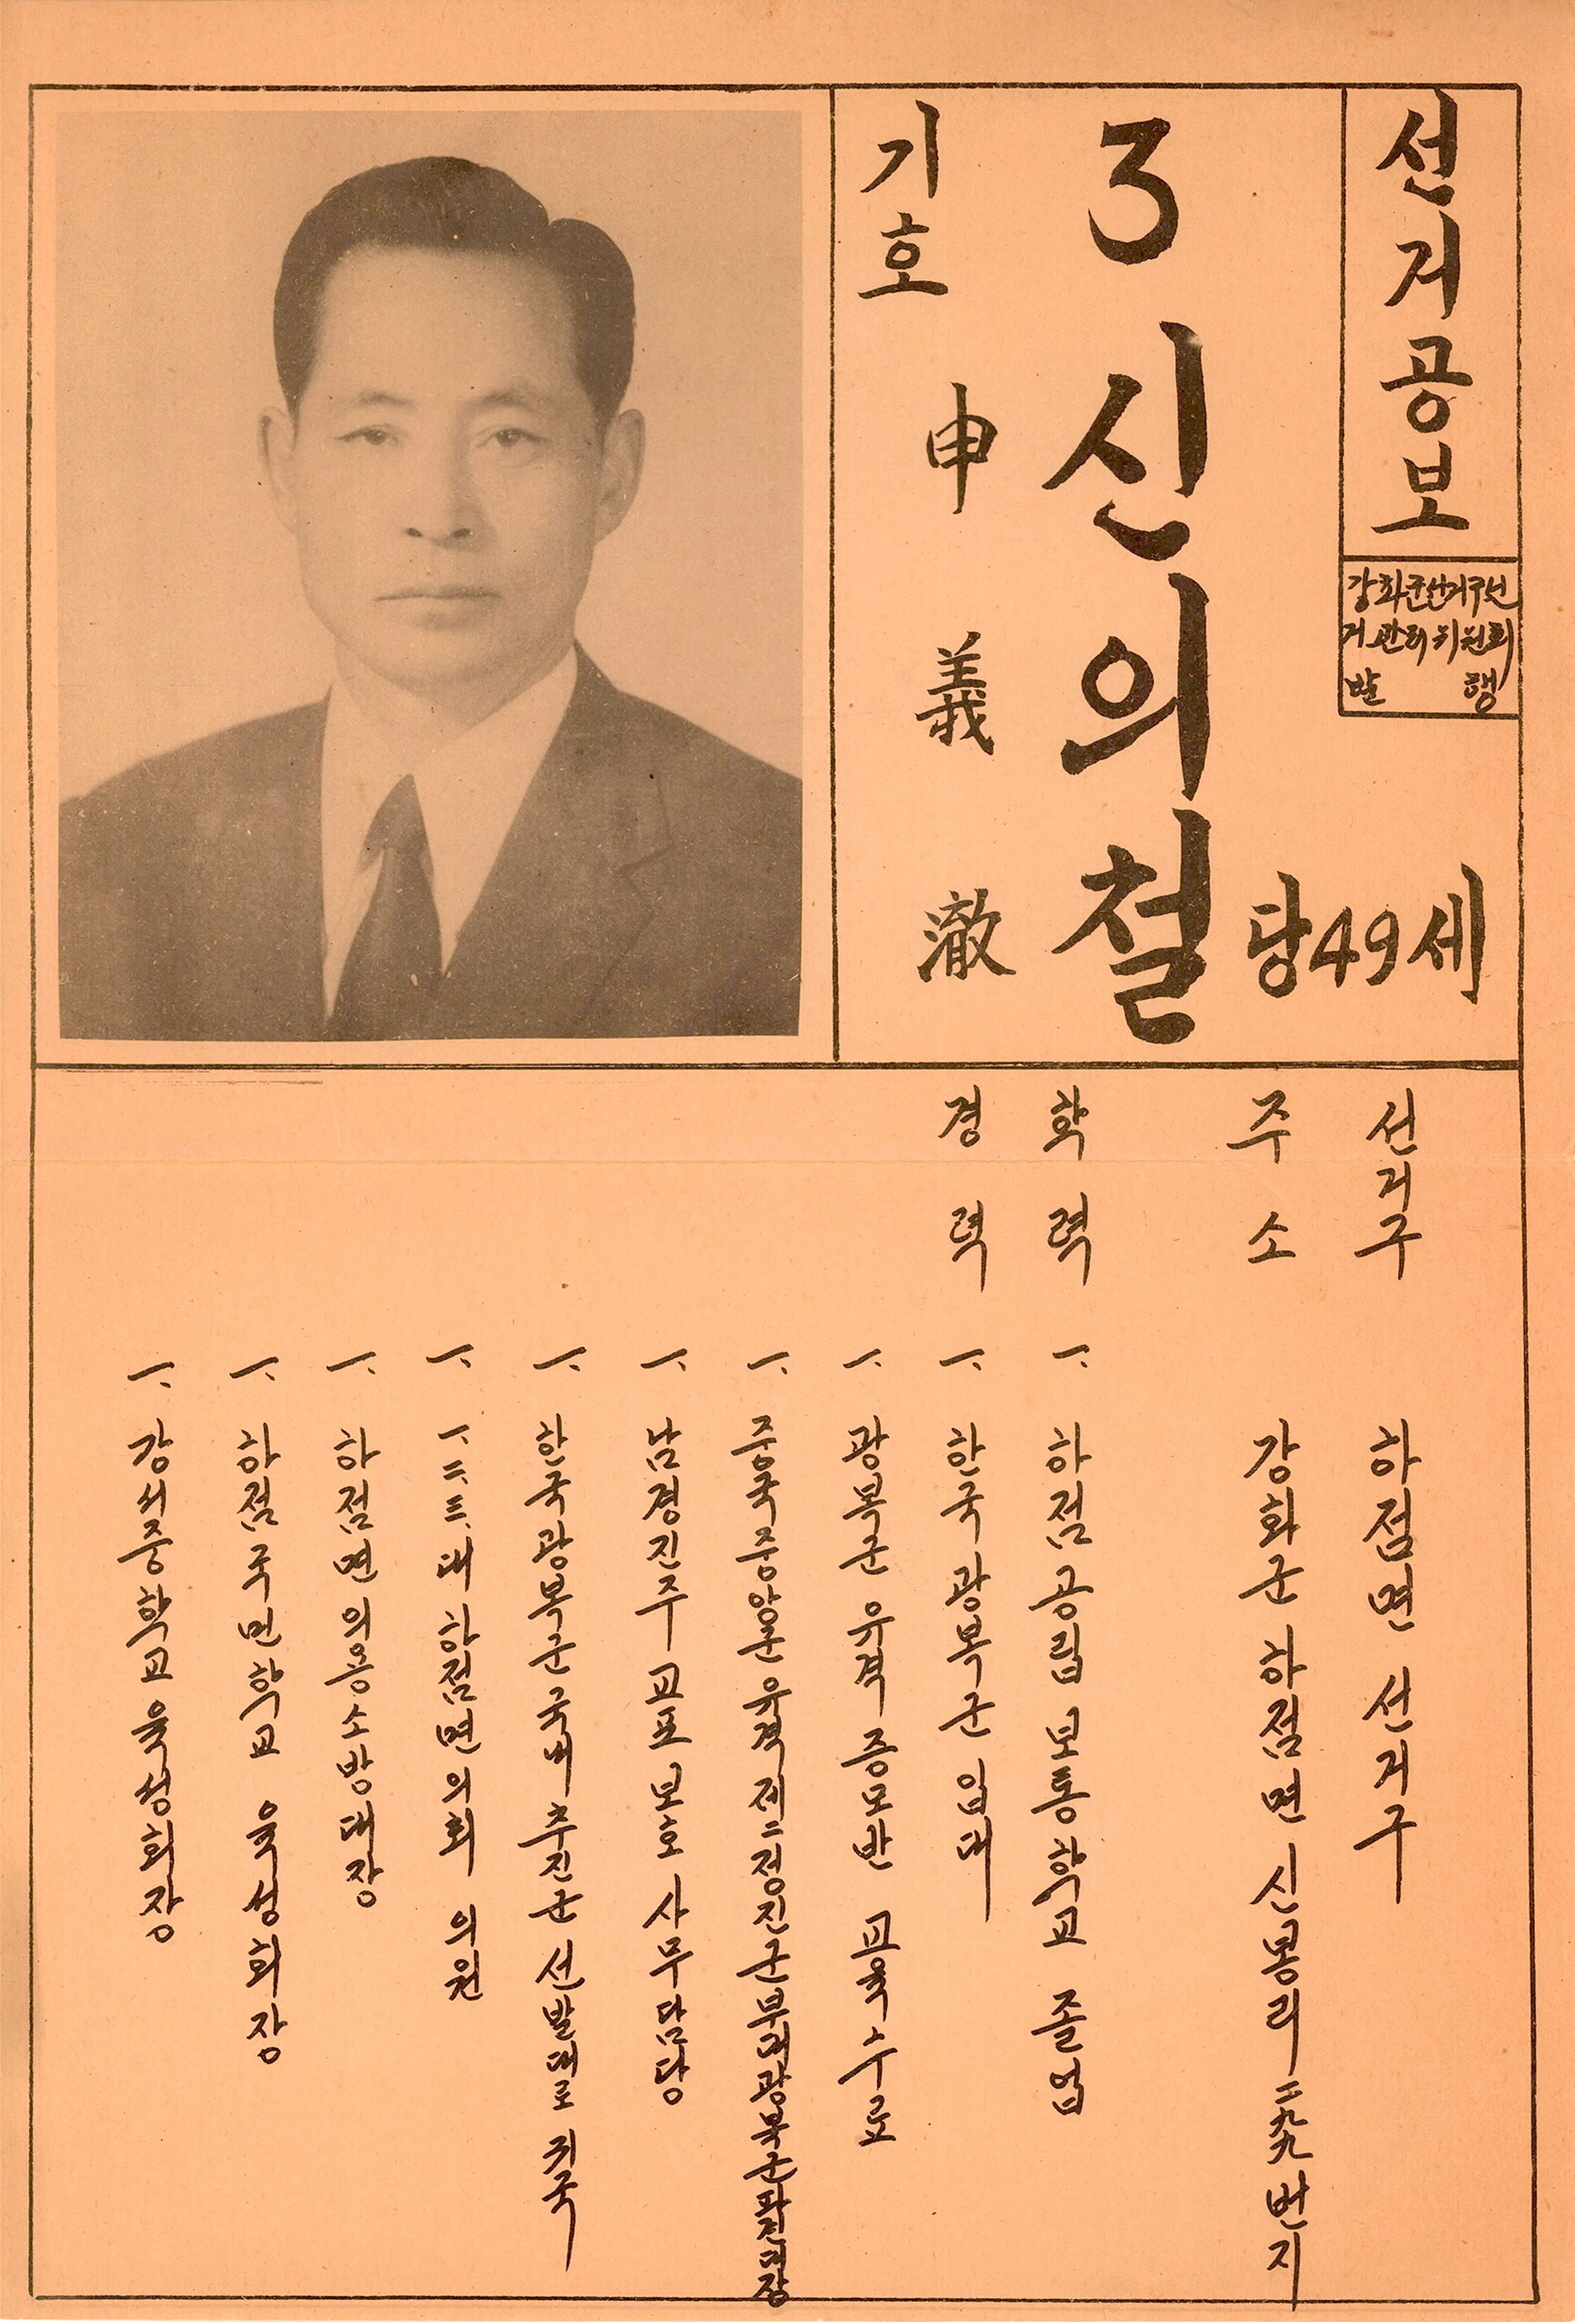 선거공보
강화군선거구선
거관리위원회
발행
3 신의철
당49세
기호
申義澈
선거구 하점면 선거구
주소 강화군 하점면 신봉리 二九九번지
학력 一. 하점공립보통학교 졸업
경력 一. 한국광복군 입대
一. 광복군 유격 증모반 교육 수료
一. 중국중앙군유격전二정진군부대광복군파견대장
一. 남경진주 교포보호 사무담당
一. 한국광복군국내추진군 선발대로 귀국
一. 一.二.三.대 하점면의회 의원
一. 하점면의용소방대장
一. 하점국민학교 육성회장
一. 강서중학교육성회장